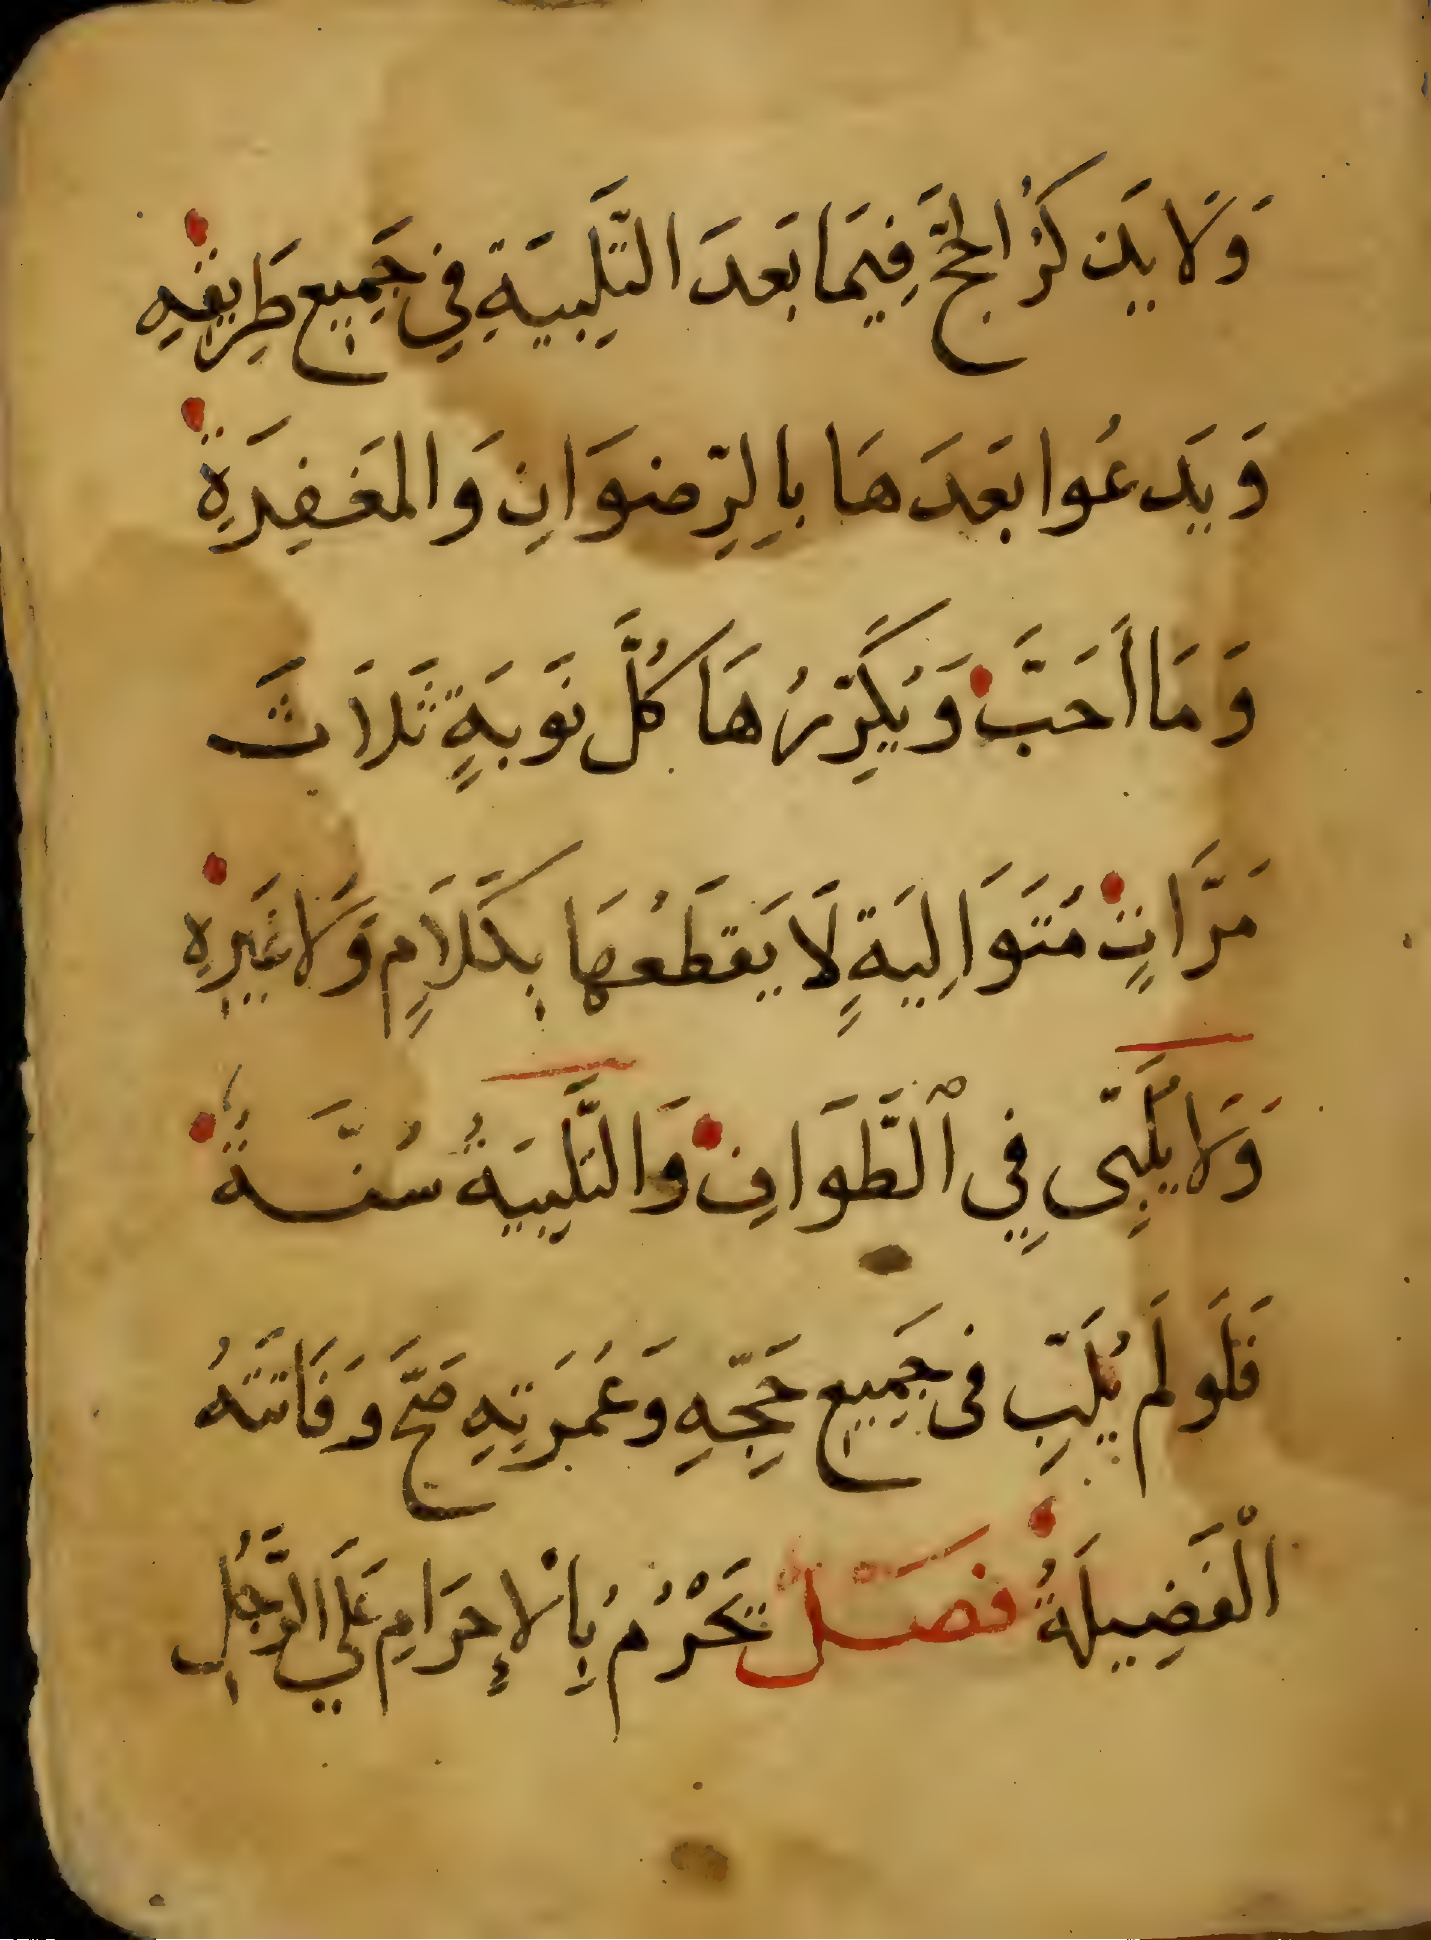 وَلَا يَذكُرُ الحَجَّ فِيمَا بَعدَ التَّلبِيَةِ فِي جَمِيعِ طَرِيقِهِ
وَيَدعُوا بَعدَهَا بِالرِّضوَانِ وَالمَغفِرَةِ
وَمَا أَحَبَّ وَيُكَرِّرُهَا كُلَّ نَوبَةٍ ثَلَاثَ
مَرَّاتٍ مُتَوَالِيَةٍ لَا يَقطَعُهَا بِكَلَامٍ وَلَا غَيرِهِ
وَلَا يُلَبِّى فِي ٱلطَّوَافِ وَالتَّلبِيَةُ سُنَّةٌ
فَلَو لَم يُلَبِّ فى جَمِيعِ حَجِّهِ وَعُمَرَتِهِ صَحَّ وَفَاتَتهُ
الْفَضِيلَةُ فَصْلٌ يَحْرُمُ بِالْإِحرَامِ عَلَي الرَّجُلِ